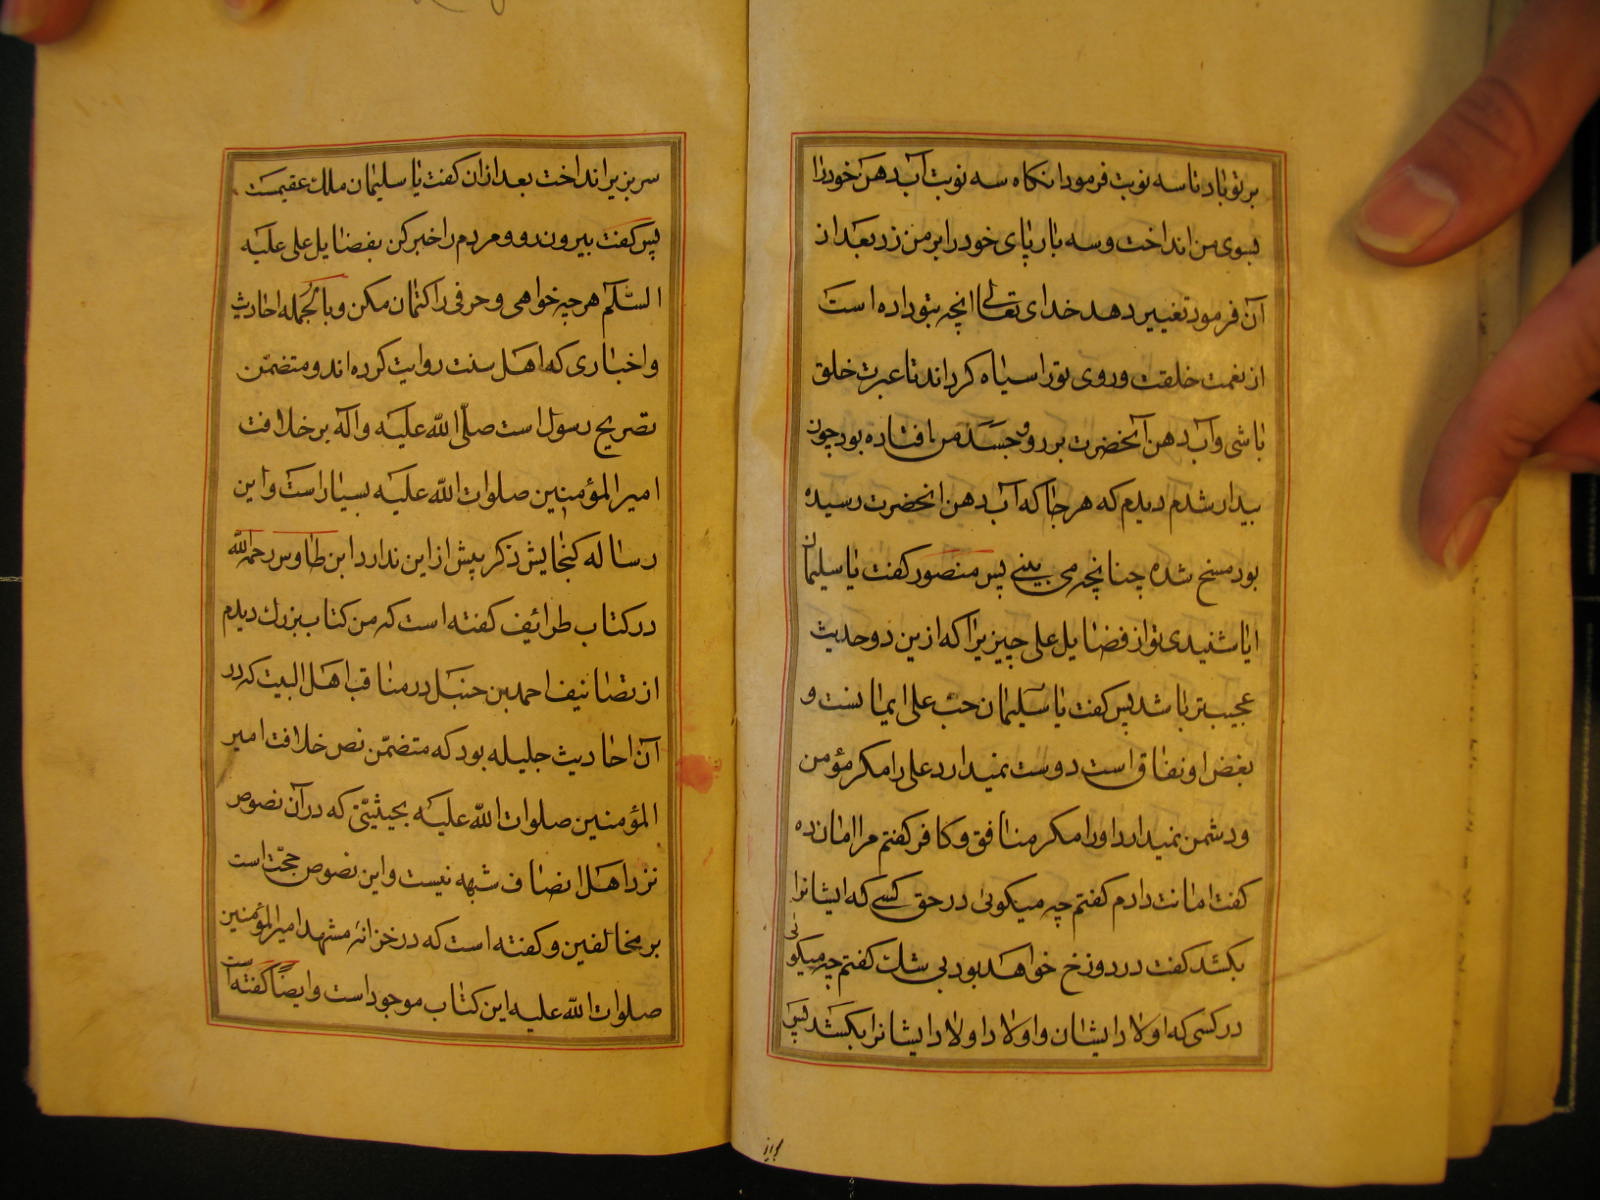 بر تو باد تا سه نوبت فرمود انکاه سه نوبت آب دهن خود را
بسوی من انداخت و سه بار پای خود را بر من زد بعد از
آن فرمود تغییر دهد خدای تعالی انچه بتو داده است
از نعمت خلقت و روی تو را سیاه کرداند تا عبرت خلق
باشی و آب دهن آنحضرت بر رو و جسد من افتاده بود چون
بیدار شدم دیدم که هر جا که آب دهن انحضرت رسیده
بود مسخ شده چنانچه می بینے پس منصور کفت یا سلیمان
ایا شنیدی تو از فضایل علی چیزیرا که ازین دو حدیث
عجیبتر باشد پس کفت یا سلیمان حب علی ایمانست و
بغض او نفاق است دوست نمیدارد علی را مکر مؤمن
و دشمن نمیدارد او را مکر منافق و کافر کفتم مرا امان ده
کفت امانت دادم کفتم چه میکوئی در حق کسی که ایشانرا
بکشد کفت در دوزخ خواهد بود بی شک کفتم چه میکوئی
در کسی که اولاد ایشان و اولاد اولاد ایشانرا بکشد پس
سر بزیر انداخت بعد ازان کفت یا سلیمان ملک عقیمست
پس کفت بیرون رو و مردم را خبر کن بفضایل علی علیه
السّلام هر چه خواهی و حرفی را کتمان مکن و بالجمله احادیث
و اخباری که اهل سنت روایت کرده اند و متضمّن
تصریح رسول است صلّی الله علیه و آله بر خلافت
امیر المؤمنین صلوات الله علیه بسیار است و این
رساله کنجایش ذکر بیش از این ندارد ابن طاوس رحمه الله
در کتاب طرائف کفته است که من کتاب بزرك دیدم
از تصانیف احمد بن حنبل در مناقب اهل البیت که در
آن احادیث جلیله بود که متضمّن نص خلافت امیر
المؤمنین صلوات الله علیه بحیثیّتی که در آن نصوص
نزد اهل انصاف شبهه نیست و این نصوص حجّت است
بر مخالفین و کفته است که در خزانهٔ مشهد امیر المؤمنین
صلوات الله علیه این کتاب موجود است و ایضًا کفته است